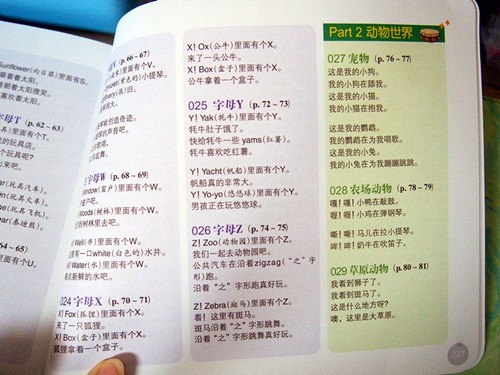 Sunflower(向日葵)里面有S。
着太阳。
着太阳微笑。
喜欢着太阳。
字母T (p. 62~63)
里面有个T。
的玩具店。
个玩具呢?
出来吧。
(玩具汽车)。
(玩具火车)。
(玩具飞机)。
bear(泰迪熊)。
64~65)
里面有个U。
(p. 66~67)
里面有个V。
(紫色的)小提琴。
创造奇迹。
声吧。
字母W (p. 68~69)
window(窗户)里面有个W。
窗户吧。
Woods(树林)里面有个W。
到树林里去吧。
Well(井)里面有个W。
有一口white(白色的)水井。
Water(水)里面有个W。
新鲜的水吧。
024 字母X (p. 70~71)
X! Fox(狐狸)里面有个X。
来了一只狐狸。
X! Box(盒子)里面有个X。
狐狸拿着一个盒子。
X! Ox(公牛)里面有个X。
来了一头公牛。
X! Box(盒子)里面有个X。
公牛拿着一个盒子。
025 字母Y (p. 72~73)
Y! Yak(牦牛)里面有个Y。
牦牛肚子饿了。
快给牦牛一些 yams(红薯)。
牦牛喜欢吃红薯。
Y! Yacht(帆船)里面有个Y。
帆船真的非常大。
Y! Yo-yo(悠悠球)里面有个Y。
男孩正在玩悠悠球。
026 字母Z (p. 74~75)
Z! Zoo(动物园)里面有个Z。
我们一起去动物园吧。
公共汽车在沿着zigzag(“之”字
形)跑。
沿着“之”字形跑真好玩。
Z! Zebra(斑马)里面有个Z。
看!这里有斑马。
斑马沿着“之”字形跳舞。
沿着“之”字形跳舞真好玩。
Part 2 动物世界
027 宠物 (p. 76~77)
这是我的小狗。
我的小狗在舔我。
这是我的小猫。
我的小猫在抱我。
这是我的鹦鹉。
我的鹦鹉在为我唱歌。
这是我的小兔。
我的小兔在为我蹦蹦跳跳。
028 农场动物 (p. 78~79)
嘎!嘎!小鸭在敲鼓。
喔!喔!小鸡在弹钢琴。
嘶!嘶!马儿在拉小提琴。
哞!哞!奶牛在吹笛子。
029 草原动物 (p. 80~81)
我看到狮子了。
我看到斑马了。
这是什么地方呀?
噢,这里是大草原。
227